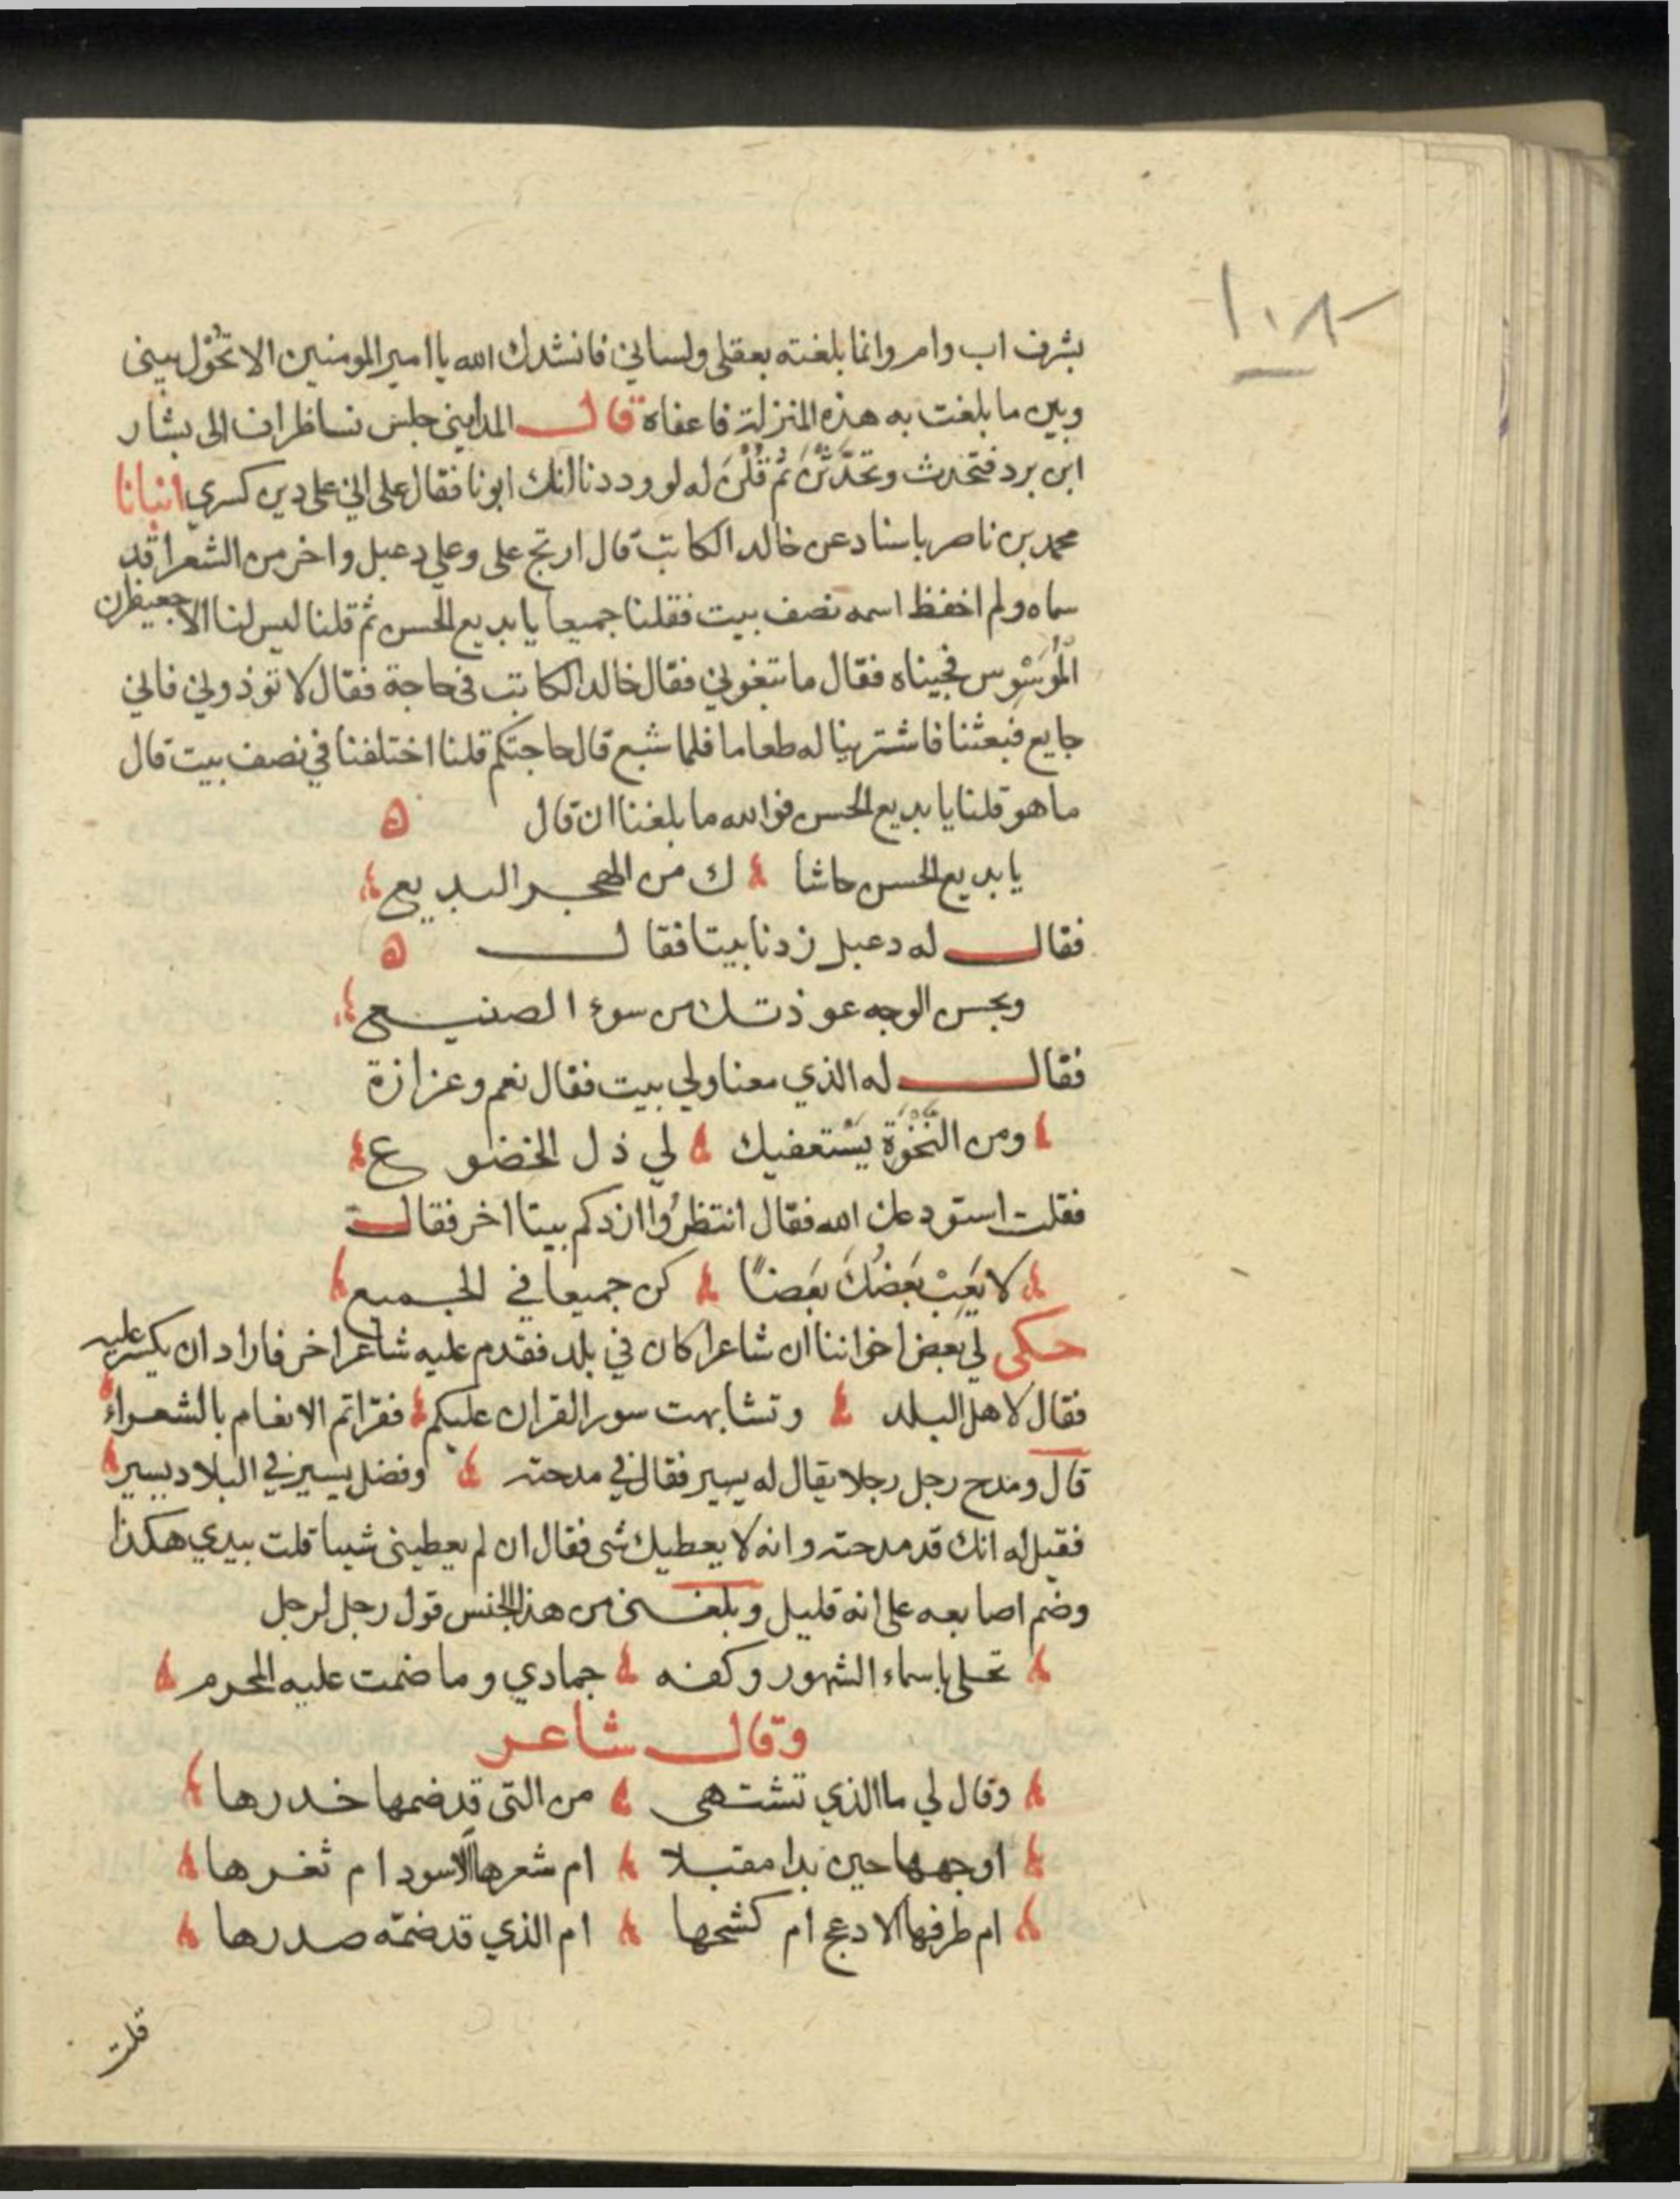 ١٠٨
بشرف اب وام وانما بلغته بعقلى ولساني فانشدك الله يا امير المومنين الا تحُوْل بيني
وبين ما بلغت به هذه المنزلة فاعفاه قال المدايني جلس نسا ظراف الى بشار
ابن برد فتحدث وتحدَّثْنَ ثم قُلْنَ له لوددنا انك ابونا فقال على اني على دين كسري انبانا
محمد بن ناصر باسناد عن خالد الكاتب قال ارتج على وعلي دعبل واخر من الشعرا قد
سماه ولم احفظ اسمه نصف بيت فقلنا جميعا يا بديع الحسن ثم قلنا ليس لنا الا جعيفران
المُوَسْوِس فجيناه فقال ما تبغوني فقال خالد الكاتب في حاجة فقال لا توذوني فاني
جايع فبعثنا فاشترينا له طعاما فلما شبع قال حاجتكم قلنا اختلفنا في نصف بيت قال
ما هو قلنا يا بديع الحسن فوالله ما بلغنا ان قال ه
يا بديع الحسن حاشا ك من الهجر البديع
فقال له دعبل زدنا بيتا فقال ه
وبحسن الوجه عوذتك من سوء الصنيع
فقال له الذي معنا ولي بيت فقال نعم وعزازة
ومن النَّخْوَة يَسْتعفيك لي ذل الخضوع
فقلت استودعك الله فقال انتظرُوا ازدكم بيتا اخر فقال
لا يَعِبْ بَعَضُكَ بَعَضًا كن جميعا في الجميع
حكى لي بعض اخواننا ان شاعرا كان في بلد فقدم عليه شاعر اخر فاراد ان يكسر عليه
فقال لاهل البلد وتشابهت سور القران عليكم فقراتم الانعام بالشعراء
قال ومدح رجل رجلا يقال له يسير فقال في مدحته وفضل يسير في البلاد يسير
فقيل له انك قد مدحته وانه لا يعطيك شى فقال ان لم يعطيني شيا قلت بيدي هكذا
وضم اصابعه على انه قليل وبلغني من هذا الجنس قول رجل لرجل
تحلى باسماء الشهور وكفه جمادي وما ضمت عليه المحرم
وقال شاعر
وقال لي ما الذي تشتهى من التى قد ضمها خدرها
اوجهها حين بدا مقبلا ام شعرها الاسود ام ثغرها
ام طرفها الادعج ام كشحها ام الذي قد ضمّه صدرها
قلت